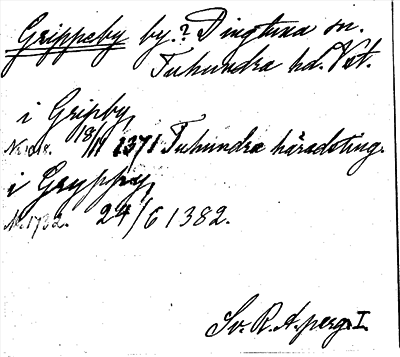 Grippeby by.? Dingtuna sn.
Tuhundra hd. Vstm.
i Gripby,
18/11 1371 Tuhundra häradsting.
i Gryppby,
Nr. 1732. 24/6 1382.
Sv. R. A. perg. I.